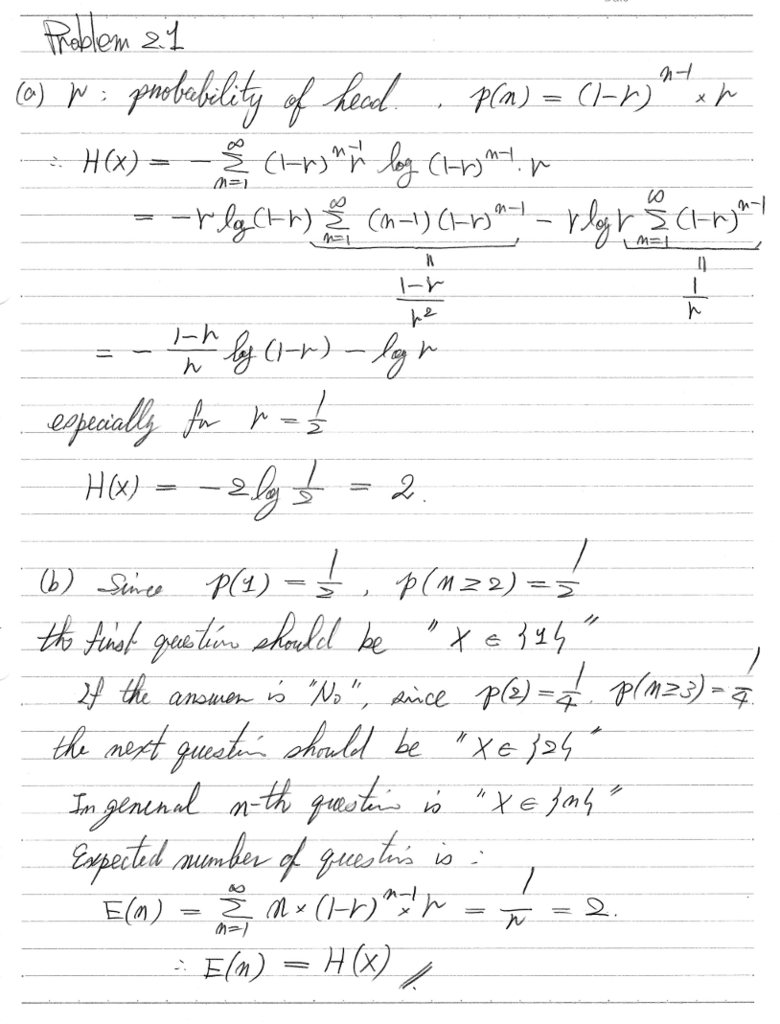 Problem 2.1
(a) r : probability of head. , p(n) = (1-r)^{n-1} × r
∴ H(X) = - Σ_{n=1}^{∞} (1-r)^{n-1} r log (1-r)^{n-1} · r
= -r log(1-r) Σ_{n=1}^{∞} (n-1)(1-r)^{n-1} - r log r Σ_{n=1}^{∞} (1-r)^{n-1}
|| ||
(1-r)/r² 1/r
= - (1-r)/r log (1-r) - log r
especially for r = 1/2
H(X) = -2 log 1/2 = 2.
(b) Since p(1) = 1/2 , p(n≥2) = 1/2
the first question should be "X ∈ {1}"
If the answer is "No", since p(2) = 1/4. p(n≥3) = 1/4
the next question should be "X ∈ {2}"
In general n-th question is "X ∈ {n}"
Expected number of questins is :
E(n) = Σ_{n=1}^{∞} n × (1-r)^{n-1} × r = 1/r = 2.
∴ E(n) = H(X) //